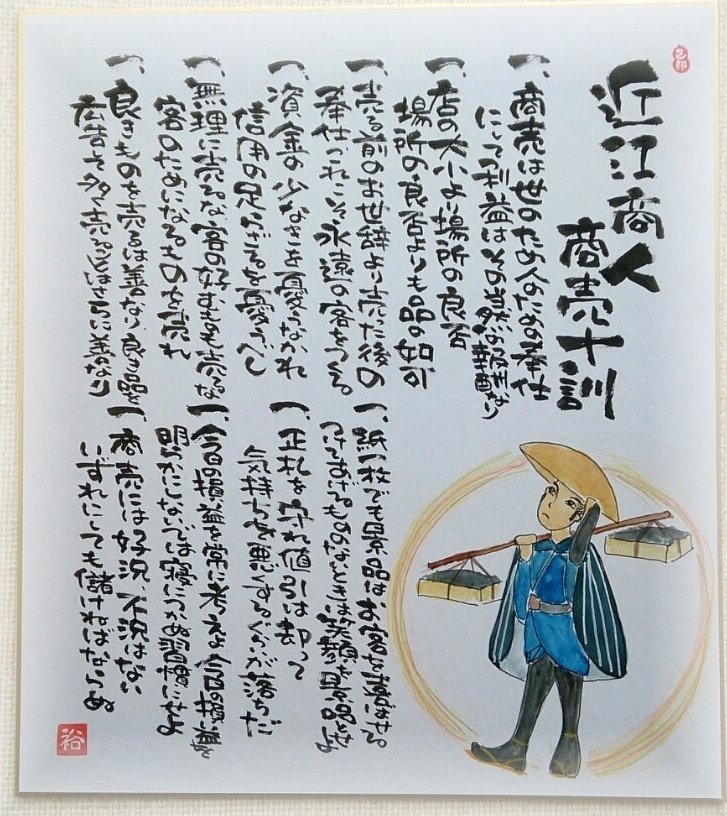 近江商人
商売十訓
一、商売は世のため人のための奉仕
にして利益はその当然の報酬なり
一、店の大小より場所の良否
場所の良否よりも品の如何
一、売る前のお世辞より売った後の
奉仕、これこそ永遠の客をつくる
一、資金の少なさを憂うなかれ
信用の足らざるを憂うべし
一、無理に売るな、客の好むものも売るな
客のためになるものを売れ
一、良きものを売るは善なり、良き品を
広告して多く売ることはさらに善なり
一、紙一枚でも景品はお客を喜ばせる
つけてあげるもののないときは笑顔を景品にせよ
一、正札を守れ値引は却って
気持ちを悪くするぐらいが落ちだ
一、今日の損益を常に考えよ、今日の損益を
明らかにしないでは寝につかぬ習慣にせよ
一、商売には好況、不況はない
いずれにしても儲けねばならぬ
裕